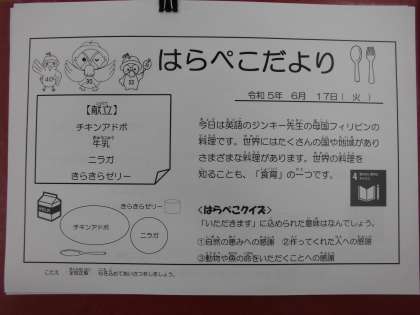 はらぺこだより
令和5年 6月 17日（火）
【献立】
チキンアドボ
牛乳
ニラガ
きらきらゼリー
今日は英語のジンキー先生の母国フィリピンの
料理です。世界にはたくさんの国や地域があり
さまざまな料理があります。世界の料理を
知ることも、「食育」の一つです。
4
きらきらゼリー
チキンアドボ
ニラガ
＜はらぺこクイズ＞
「いただきます」に込められた意味はなんでしょう。
①自然の恵みへの感謝 ②作ってくれた人への感謝
③動物や魚の命をいただくことへの感謝
こたえ